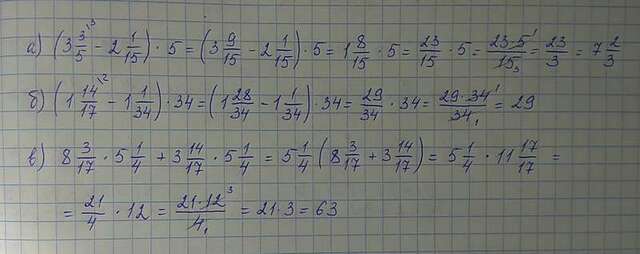 а) (3 3/5 \3 - 2 1/15) · 5 = (3 9/15 - 2 1/15) · 5 = 1 8/15 · 5 = 23/15 · 5 = 23·5 1/15 3 = 23/3 = 7 2/3
б) (1 14/17 \2 - 1 1/34) · 34 = (1 28/34 - 1 1/34) · 34 = 29/34 · 34 = 29·34 1/34 1 = 29
в) 8 3/17 · 5 1/4 + 3 14/17 · 5 1/4 = 5 1/4 (8 3/17 + 3 14/17) = 5 1/4 · 11 17/17 =
= 21/4 · 12 = 21·12 3/4 1 = 21·3 = 63